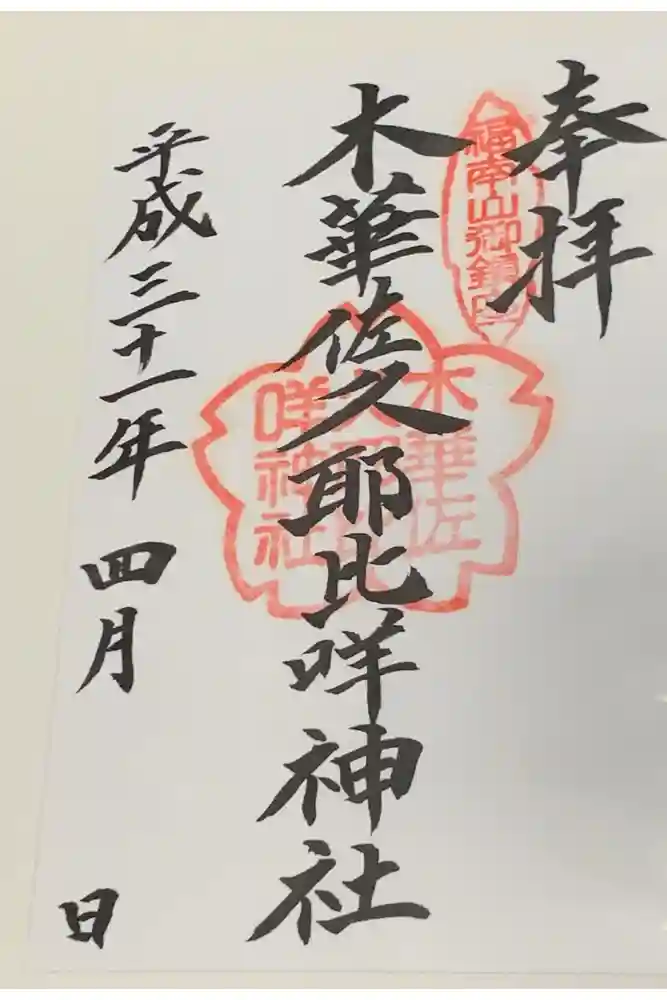 奉拝
福南山御鎮座
木華佐久耶比咩神社
木華佐
久耶比
咩神社
平成三十一年四月 日